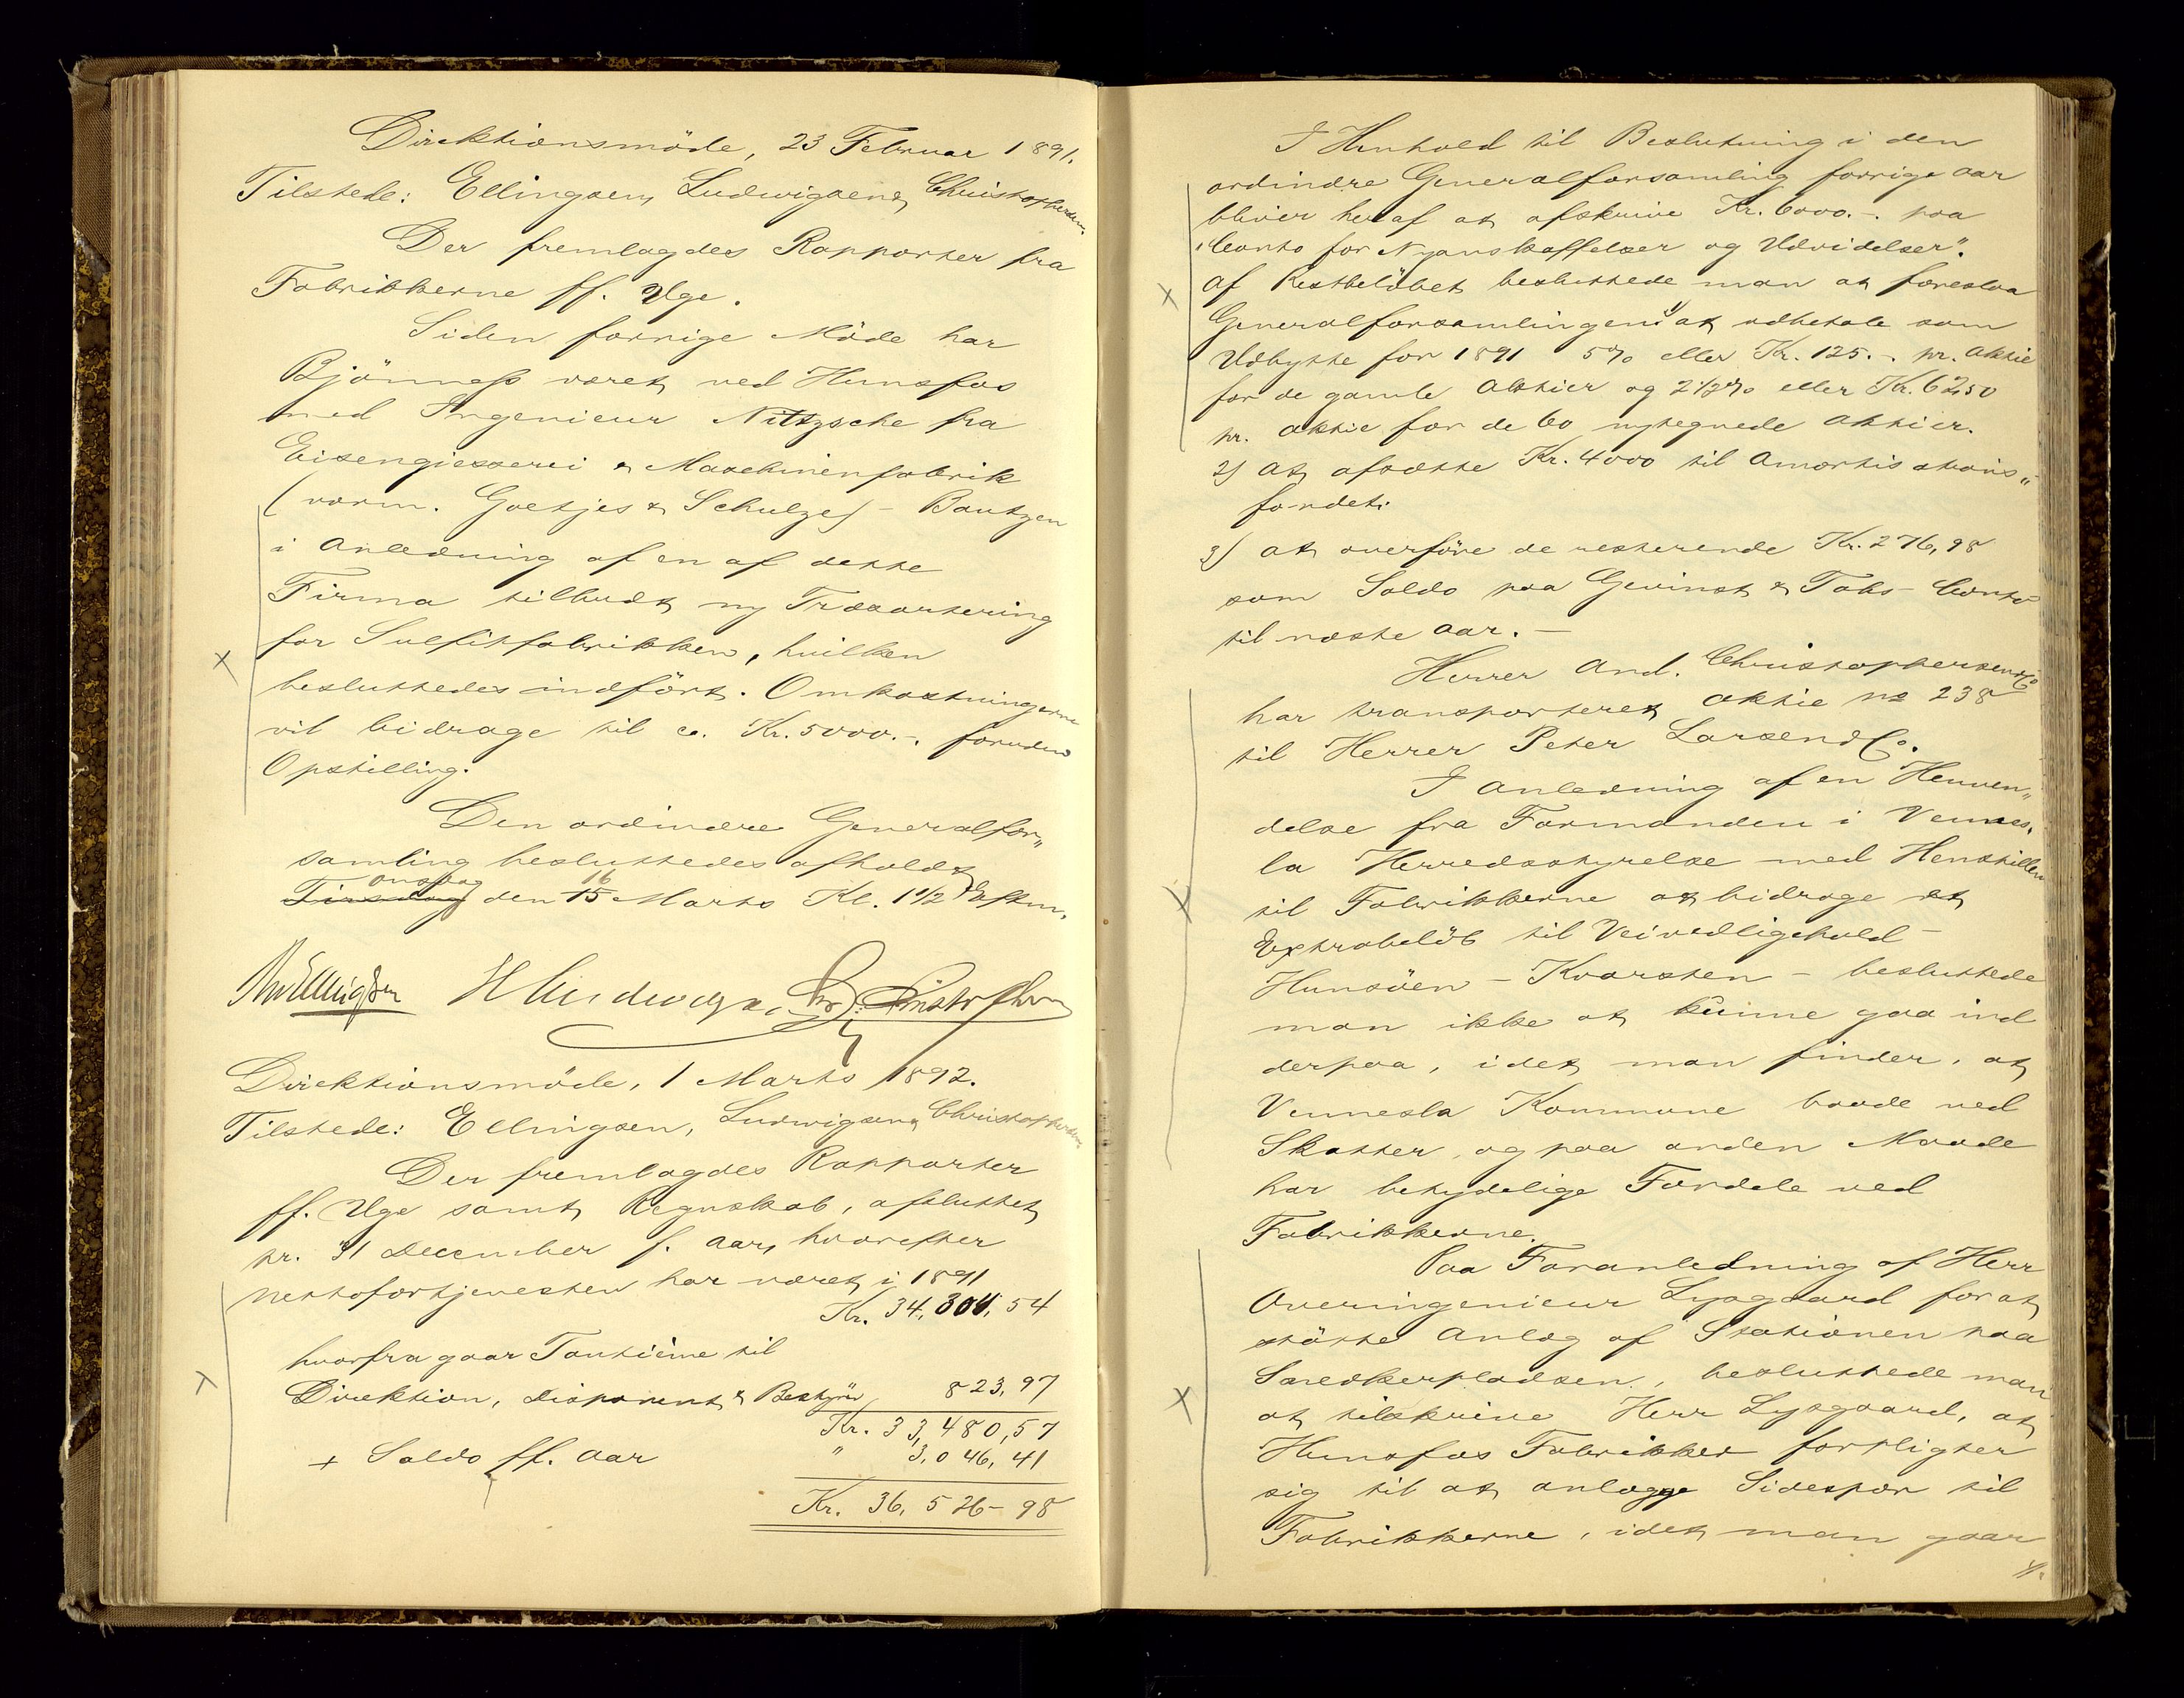 Direktionsmöde, 23 Februar 1891.
Tilstede: Ellingsen, Ludwigsen & Christophersen.
Der fremlagdes Rapporter fra
Fabrikkerne ff. Uge.
Siden forrige Möde har
Bjönness været ved Hunsfos
med Ingenieur Nittzsche fra
Eisengiesserei & Maschinenfabrik
(vorm. Goetjes & Schulze) - Bautzen
i Anledning af en af dette
Firma tilbudt ny Træsortering
for Sulfitfabrikken, hvilken
besluttedes indfört. Omkostningerne
vil bidrage til ca. Kr. 5000.-. foruden
Opstilling.
Den ordinære Generalfor„
samling besluttedes afholdt
Tirsdag onsdag den 15 16 Marts Kl. 1 1/2 Eftm.
Ellingsen H Ludwigsen Chr. Christophersen
Direktionsmöde, 1 Marts 1892.
Tilstede: Ellingsen, Ludwigsen & Christophersen
Der fremlagdes Rapporter
ff. Uge samt Regnskab, afsluttet
pr. 31 December f. Aar, hvorefter
Nettofortjenesten har været i 1891
Kr. 34,304,54
hvorfra gaar Tantième til
Direktion, Disponent & Bestyrer 823,97
Kr. 33,480,57
+ Saldo ff. Aar " 3,046,41
Kr. 36,526-98
I Henhold til Beslutning i den
ordinære Generalforsamling forrige Aar
bliver heraf at afskrive Kr. 6000.-. paa
„Conto for Nyanskaffelser og Udvidelser".
Af Restbelöbet besluttede man at foreslaa
Generalforsamlingen: 1) at udbetale som
Udbytte for 1891 5% eller Kr. 125.-. pr. Aktie
for de gamle Aktier og 2 1/2% eller Kr. 62,50
pr. Aktie for de 60 nytegnede Aktier.
2) At afsætte Kr. 4000 til Amortisations„
fondet.
3) At overföre de resterende Kr. 276,98
som Saldo paa Gevinst & Tabs-Conto
til næste Aar. -
Herrer And. Christophersen & Co
har transporteret Aktie No 238
til Herrer Peter Larsen & Co.
I Anledning af en Henven„
delse fra Formanden i Vennes„
la Herredsstyrelse med Henstillen
til Fabrikkerne at bidrage et
Extrabelöb til Veivedligehold -
Hunsöen - Kvarsten - besluttede
man ikke at kunne gaa ind
derpaa, idet man finder, at
Vennesla Kommune baade ved
Skatter, og paa anden Maade
har betydelige Fordele ved
Fabrikkerne.
Paa Foranledning af Herr
Overingenieur Lysgaard for at
stötte Anlæg af Stationen paa
Snedkerpladsen, besluttede man
at tilskrive Herr Lysgaard, at
Hunsfos Fabrikker forpligter
sig til at anlægge Sidespor til
Fabrikkerne, idet man gaar